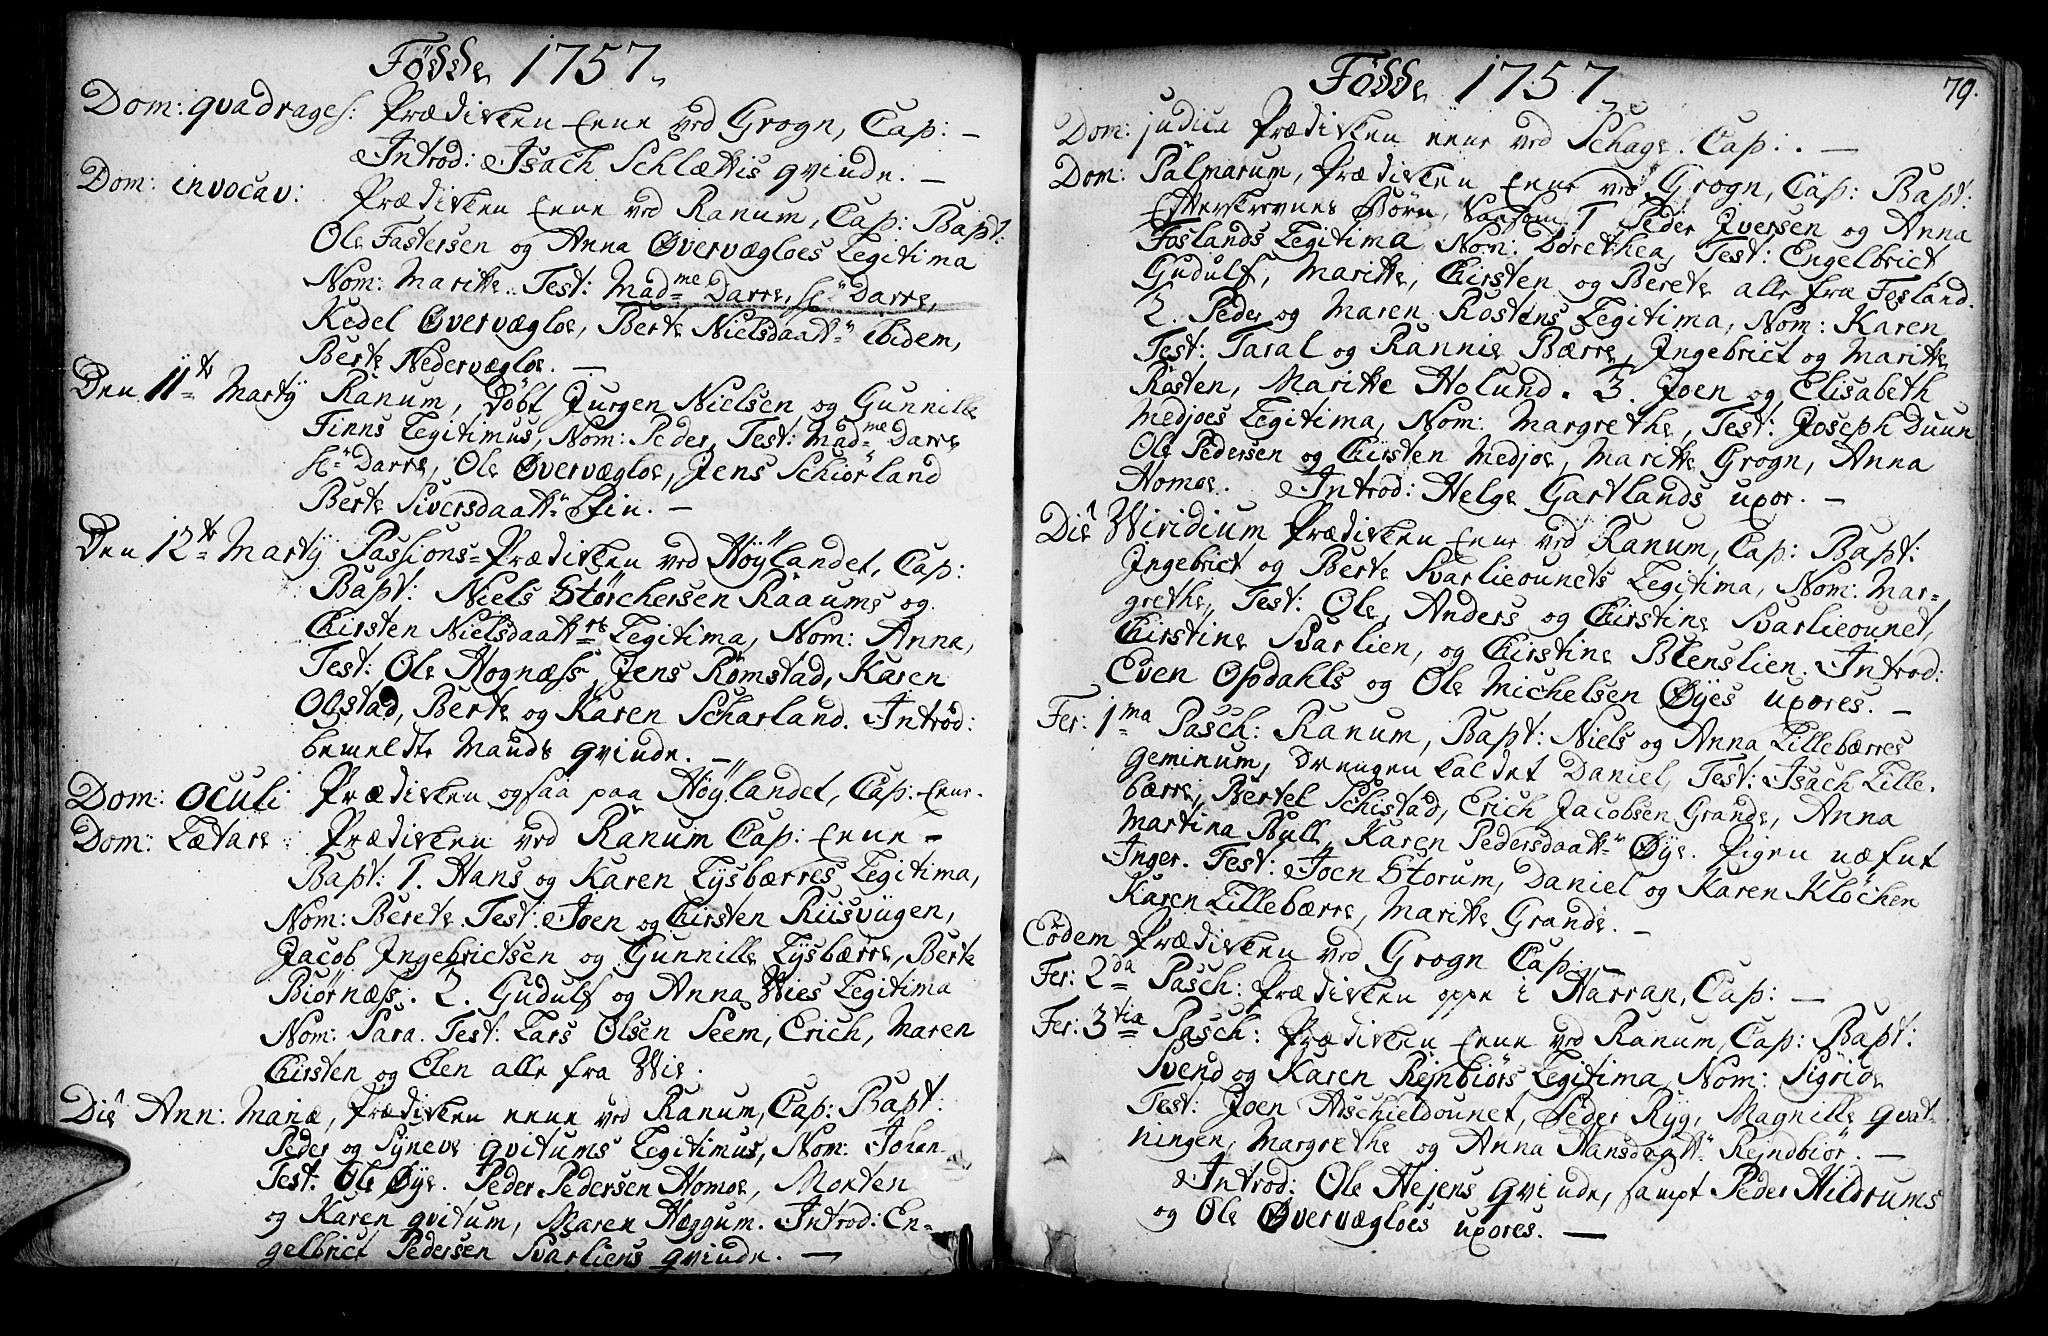 Födde 1757.
Dom: qvadrages: Prædicken eene ved Grogn, Cap: –
Introd: Isach Schlettis qvinde. –
Dom: invocav: Prædicken eene ved Ranum, Cap: Bapt:
Ole Fastersen og Anna Øvervægloes Legitima
Nom: Maritte. Test: Madme Darre, Sl: Darre,
Kedel Øvervægloe, Berte Nielsdaatt: ibidem,
Berte Nedervægloe. –
Den 11te Martÿ Ranum, döbt Jurgen Nielsen og Gunnille
Finns Legitimus, Nom: Peder, Test: Madme Darre
Sl: Darre, Ole Øvervægloe, Jens Schiörland
Berte Siversdaatt: Fin. –
Den 12te Martÿ Passions-Prædicken ved Höylandet, Cap:
Bapt: Niels Störchersen Raaums og
Chirsten Nielsdaattrs Legitima, Nom: Anna,
Test: Ole Hognæss, Jens Römstad, Karen
Olgstad, Berte og Karen Scharland. Introd:
bemeldte Mands qvinde. –
Dom: Oculi Prædicken ogsaa paa Höylandet, Cap: eene.
Dom: Lætare: Prædicken ved Ranum Cap: eene –
Bapt: 1. Hans og Karen Lysbærres Legitima,
Nom: Berete. Test: Joen og Chirsten Riisviigen,
Jacob Ingebrictsen og Gunnille Lysbærre, Berte
Biörnæss. 2. Gudulf og Anna Wies Legitima
Nom: Sara. Test: Lars Olsen Seem, Erich, Maren
Chirsten og Elen alle fra Wie.
Die Ann: Mariæ, Prædicken eene ved Ranum, Cap: Bapt:
Peder og Syneve qvitums Legitimus, Nom: Johan
Test: Ole Øye. Peder Pedersen Homoe, Morten
og Karen qvitum, Maren Hæggum. Introd: En-
gelbrict Pedersen Svarliens qvinde. –
Födde 1757
79.
Dom: judica Prædicken eene ved Schage. Cap: . –
Dom: Palmarum, Prædicken eene ved Grogn, Cap: Bapt:
Efterskrevnes Börn, Saasom 1 Peder Iversen og Anna
Foslands Legitima Nom: Dorethea, Test: Engelbrict
Gudulf, Maritte, Chirsten og Berete alle fra Fosland.
2. Peder og Maren Röstens Legitima, Nom: Karen
Test: Taral og Rannie Bærre, Ingebrict og Maritte
Rösten, Maritte Holund. 3. Joen og Elisabeth
Medjoes Legitima, Nom: Margrethe, Test: Joseph Duun
Ole Pedersen og Chirsten Medjoe, Maritte Grogn, Anna
Homoe. Introd: Helge Gartlands uxor. –
Die Wiridium Prædicken eene ved Ranum, Cap: Bapt:
Ingebrict og Berte Svarlieounets Legitima, Nom: Mar-
grethe, Test: Ole, Anders og Chirstine Svarlieounet,
Chirstine Svarlien, og Chirstine Blenslien. Introd:
Even Opdahls og Ole Michelsen Øyes uxores. –
Fer: 1ma Pasch: Ranum, Bapt: Niels og Anna Lillebærres
geminum, Drengen kaldet Daniel, Test: Isach Lille-
bærre, Bertel Schistad, Erich Jacobsen Grande, Anna
Martina Bull, Karen Pedersdaatt: Øye. Pigen næfnt
Inger. Test: Joen Storum, Daniel og Karen Klöchen
Karen Lillebærre, Maritte Grande. –
Eodem Prædicken ved Grogn Cap: –
Fer: 2da Pasch: Prædicken oppe i Harran, Cap: –
Fer: 3tia Pasch: Prædicken eene ved Ranum, Cap: Bapt:
Svend og Karen Rejnbiörs Legitima, Nom: Sigride
Test: Joen Aschieldounet, Peder Ryg, Magnille qvat-
ningen, Margrethe og Anna Hansdaatt: Rejndbiör. –
Introd: Ole Hejens qvinde, sampt Peder Hildrums
og Ole Øvervægloes uxores. –